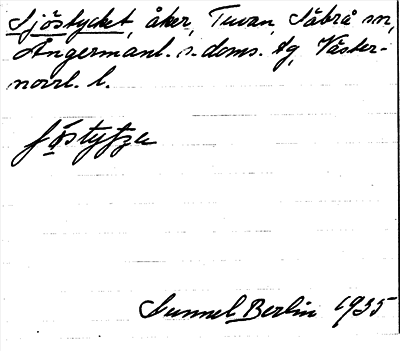 Sjöstycket, åker, Tuvan, Säbrå sn,
Ångermanl. s. doms. tg, Väster-
norrl. l.
Gunnel Berlin 1935